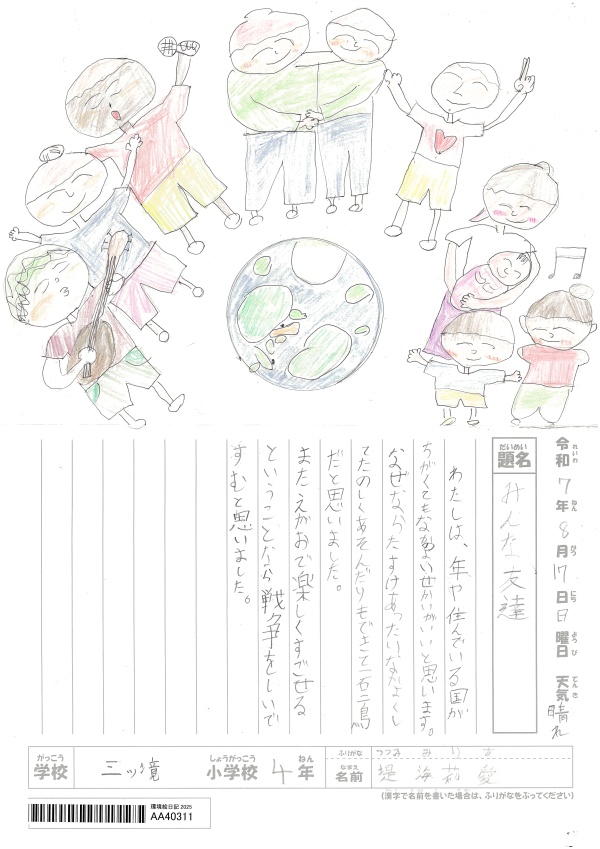 令和7年8月17日日曜日 天気 晴れ
れいわ ねん がつ にち ようび てんき
だいめい
題名 みんな友達
わたしは、年や住んでいる国が
ちがくてもなかよいせかいがいいと思います。
なぜならたすけあったり、なかよくし
てたのしくあそんだりもできて一石二鳥
だと思いました。
またえがおで楽しくすごせる
ということなら戦争をしないで
すむと思いました。
がっこう しょうがっこう ねん ふりがな つつみ みりあ
学校 三ツ境 小学校 4年 なまえ 名前 堤 海莉愛
(漢字で名前を書いた場合は、ふりがなをふってください)
環境絵日記 2025
AA40311